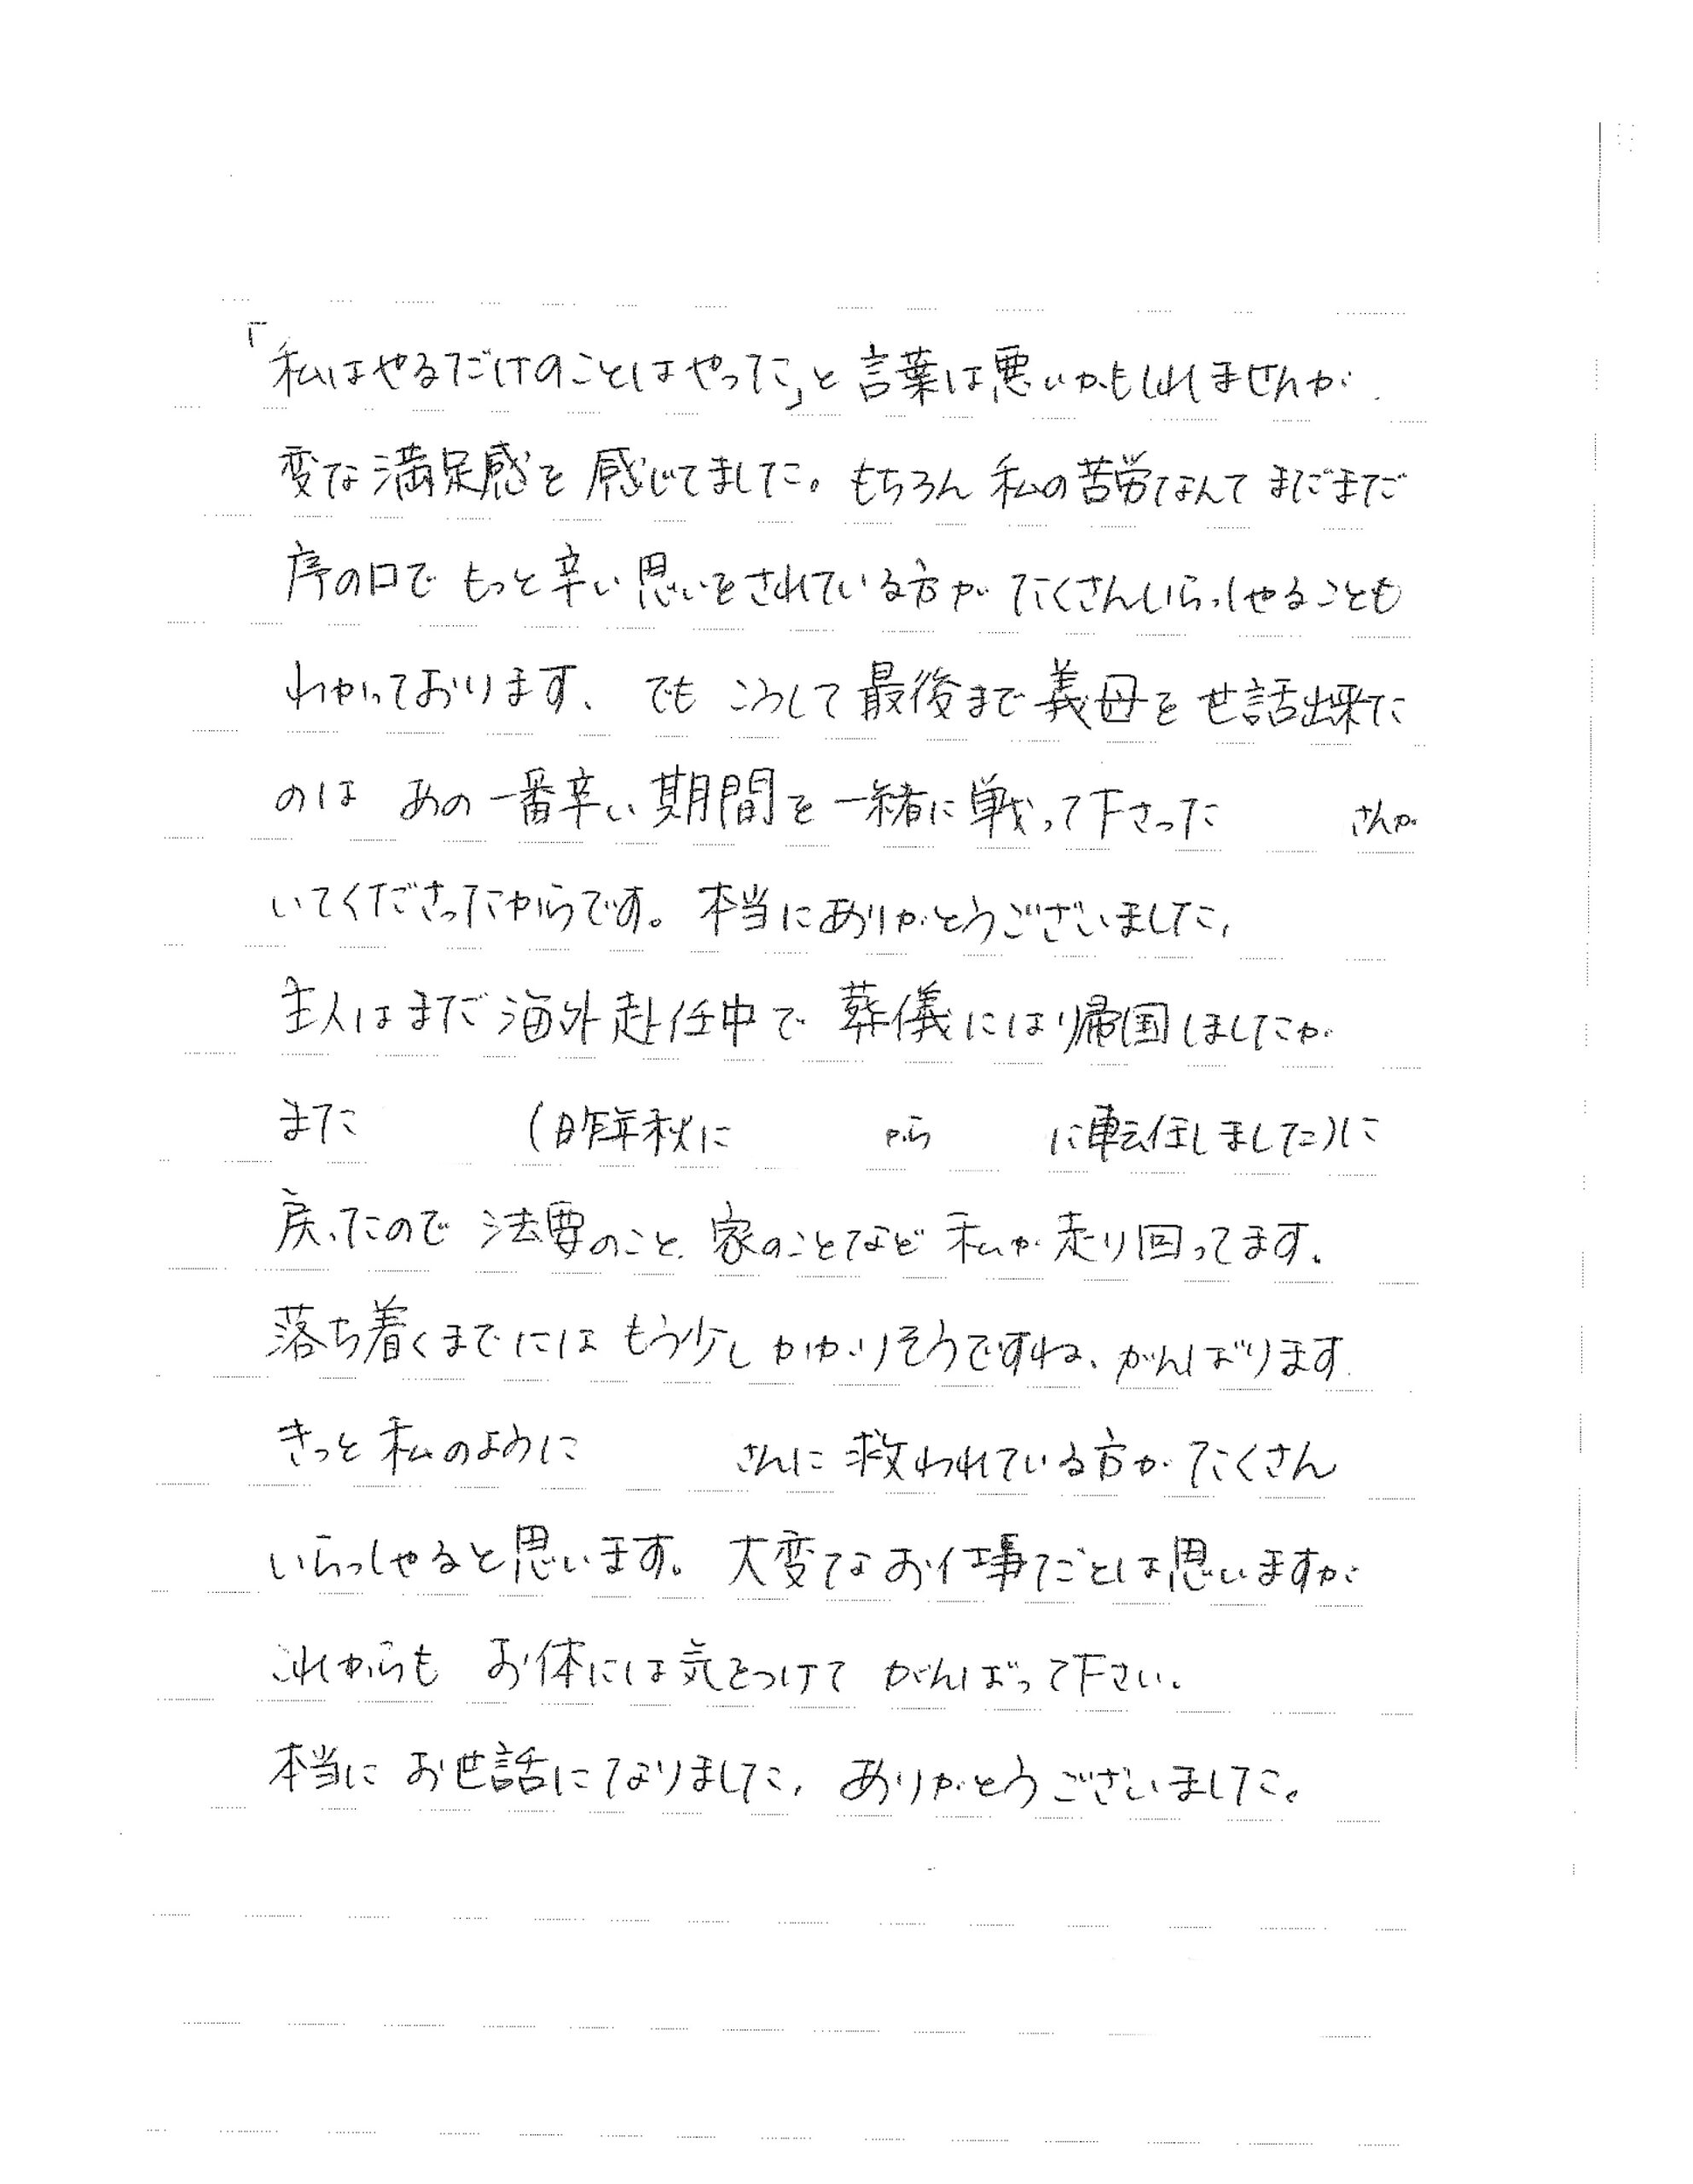 「私はやるだけのことはやった」と言葉は悪いかもしれませんが
変な満足感を感じてました。もちろん 私の苦労なんて まだまだ
序の口で もっと辛い思いをされている方が たくさんいらっしゃることも
わかっております、 でも こうして最後まで義母を世話出来た
のは あの一番辛い期間を一緒に戦って下さった さんが
いてくださったからです。 本当にありがとうございました,
主人はまだ海外赴任中で 葬儀には帰国しましたが
また (昨年秋に から に転任しました)に
戻ったので 法要のこと、家のことなど 私が走り回ってます。
落ち着くまでには もう少しかかりそうですね、がんばります.
きっと私のように さんに救われている方が たくさん
いらっしゃると思います。 大変なお仕事だとは思いますが
これからも お体には気をつけて がんばって下さい。
本当に お世話になりました, ありがとうございました。